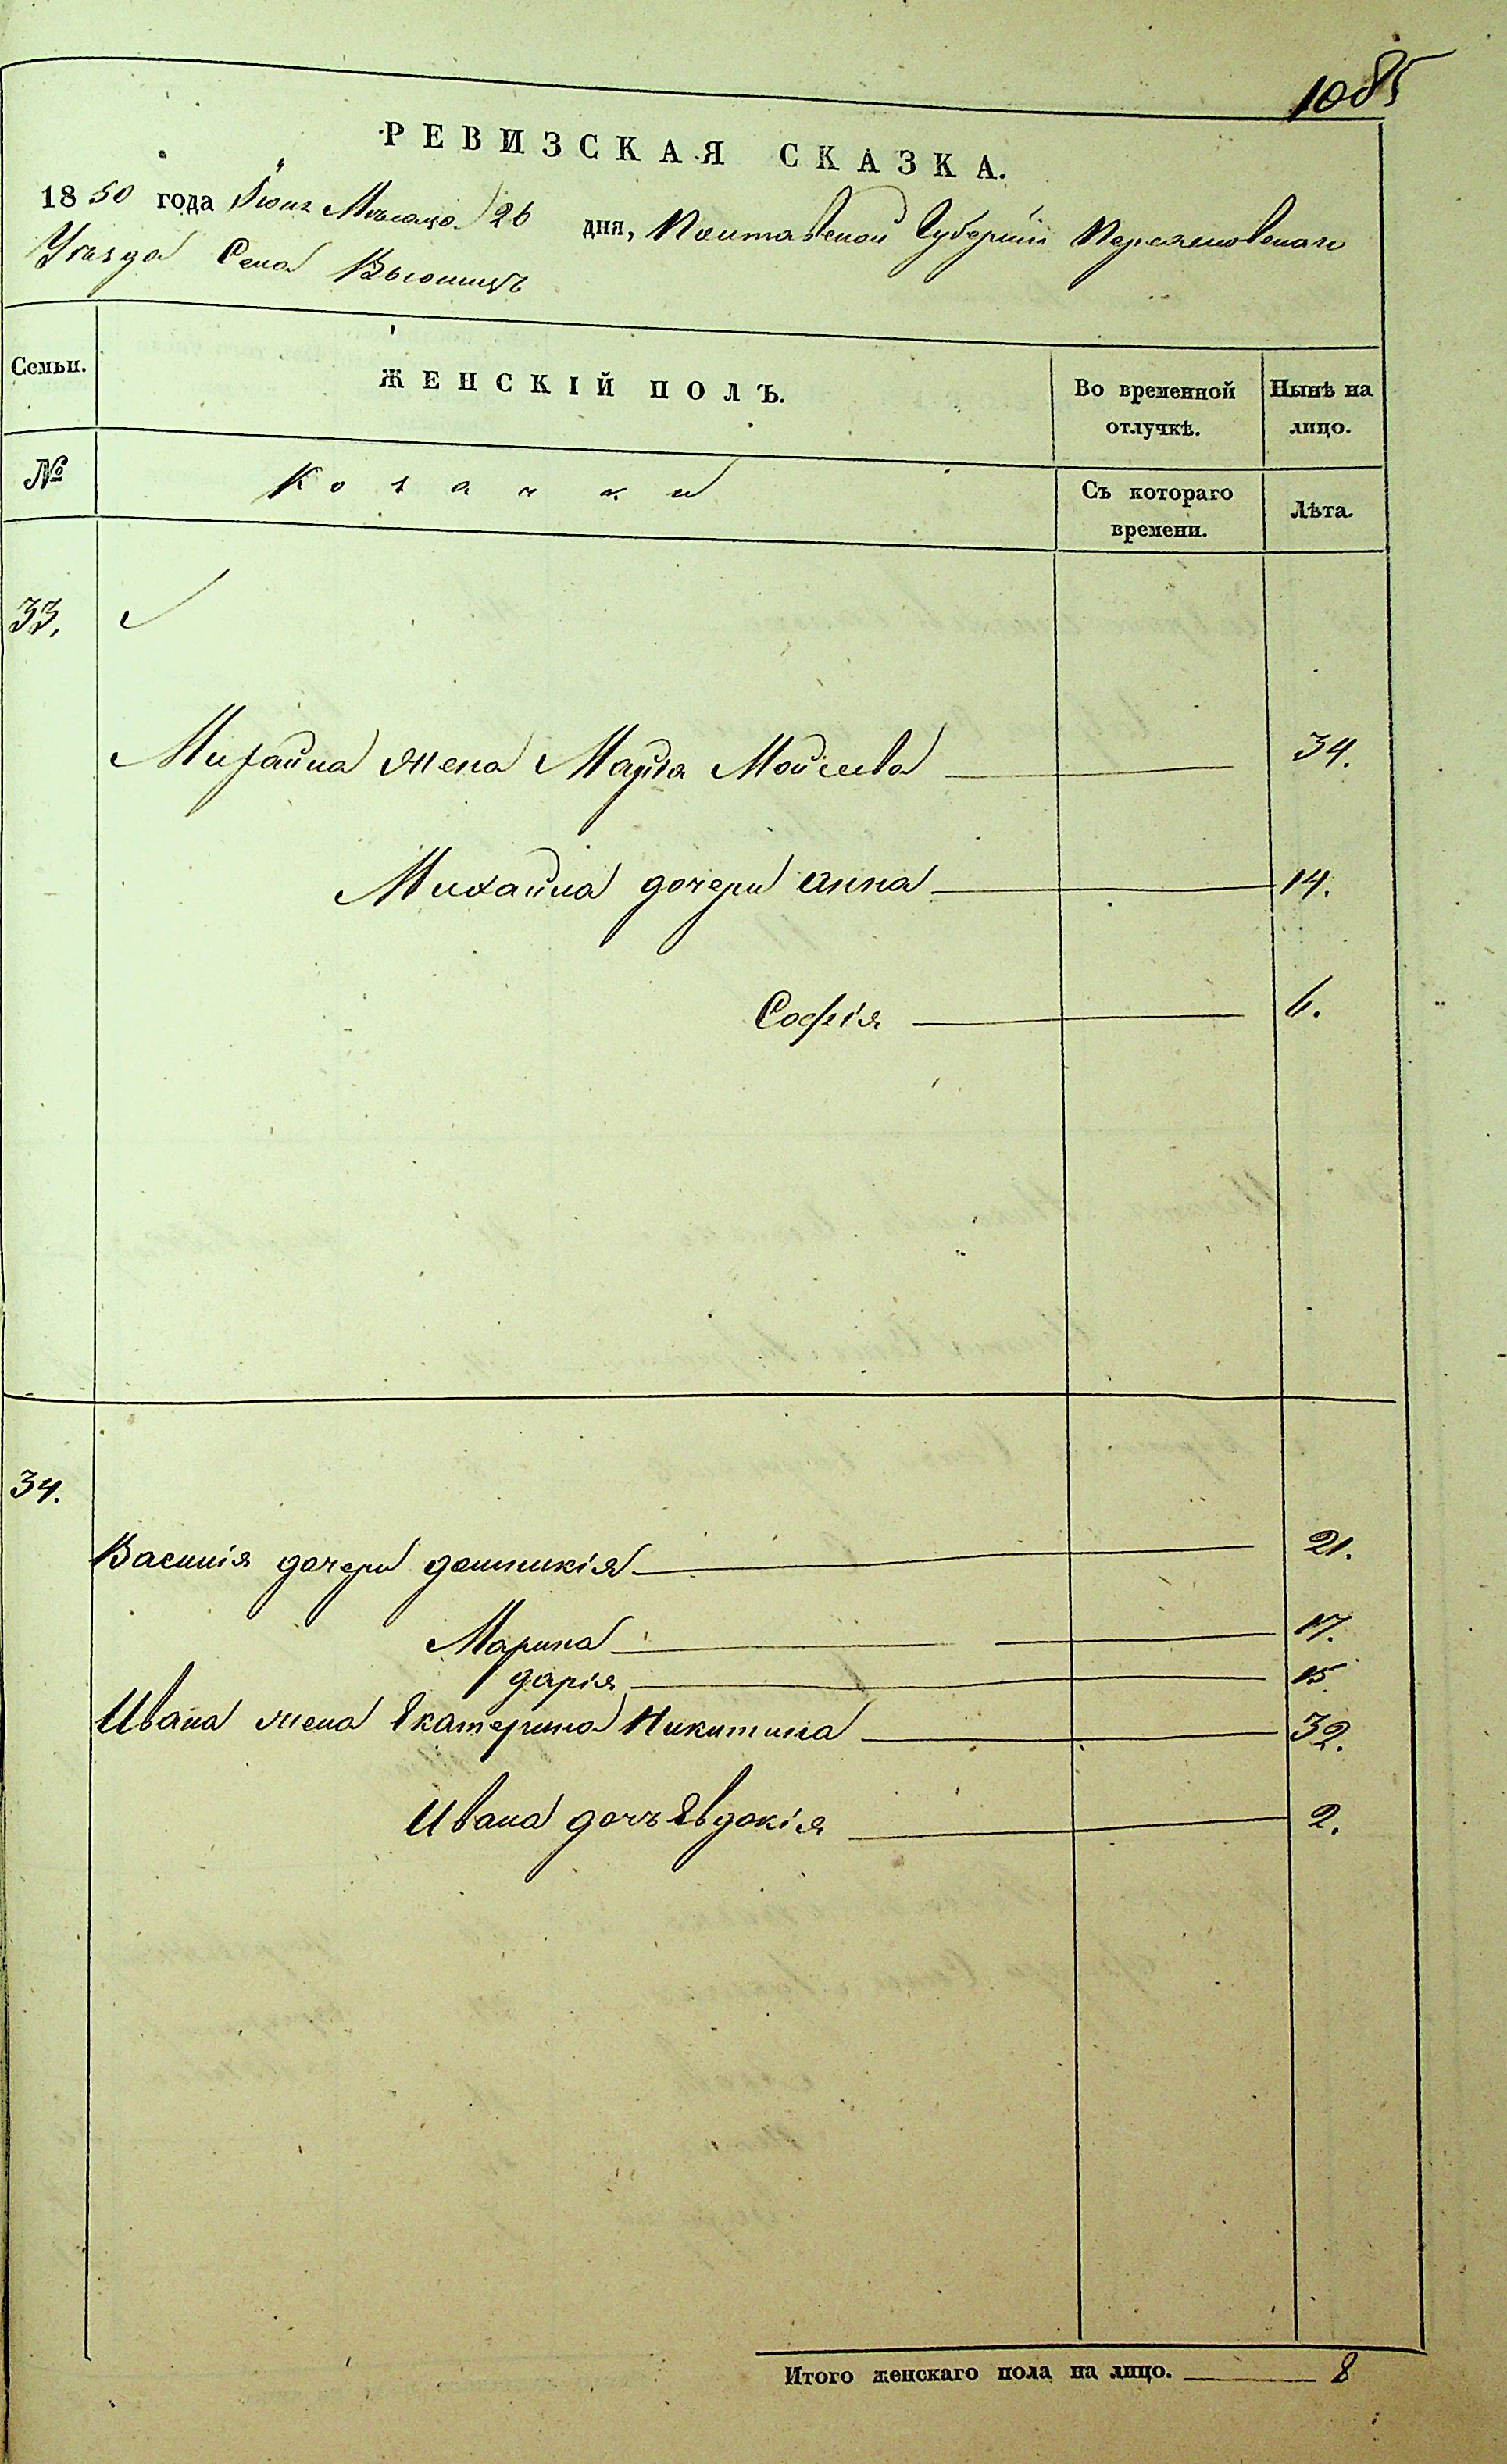 1085
РЕВИЗСКАЯ СКАЗКА.
1850 года Іюня Мѣсяца 26 дня, Полтавской Губерніи Переяславскаго
Уѣзда Села
Семьи.
ЖЕНСКІЙ ПОЛЪ.
Во временной отлучкѣ.
Нынѣ на лицо.
№
Козачки
Съ котораго времени.
Лѣта.
33.
Михайла жена Марія Моисеева 34.
Михайла дочери Анна 14.
Софія 6.
34.
Василія дочери домникія 21.
Марина 17.
дарія 15
Ивана жена Екатерина Никитина 32.
Ивана дочь Евдокія 2.
Итого женскаго пола на лицо. 8